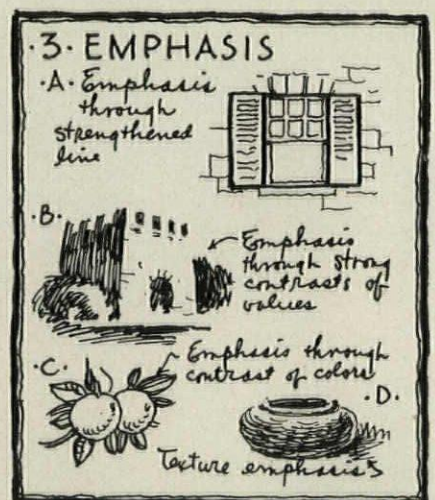 ·3· EMPHASIS
·A· Emphasis
through
strengthened
line
·B·
Emphasis
through strong
contrasts of
values
·C·
Emphasis through
contrast of colors
·D·
Texture emphasis